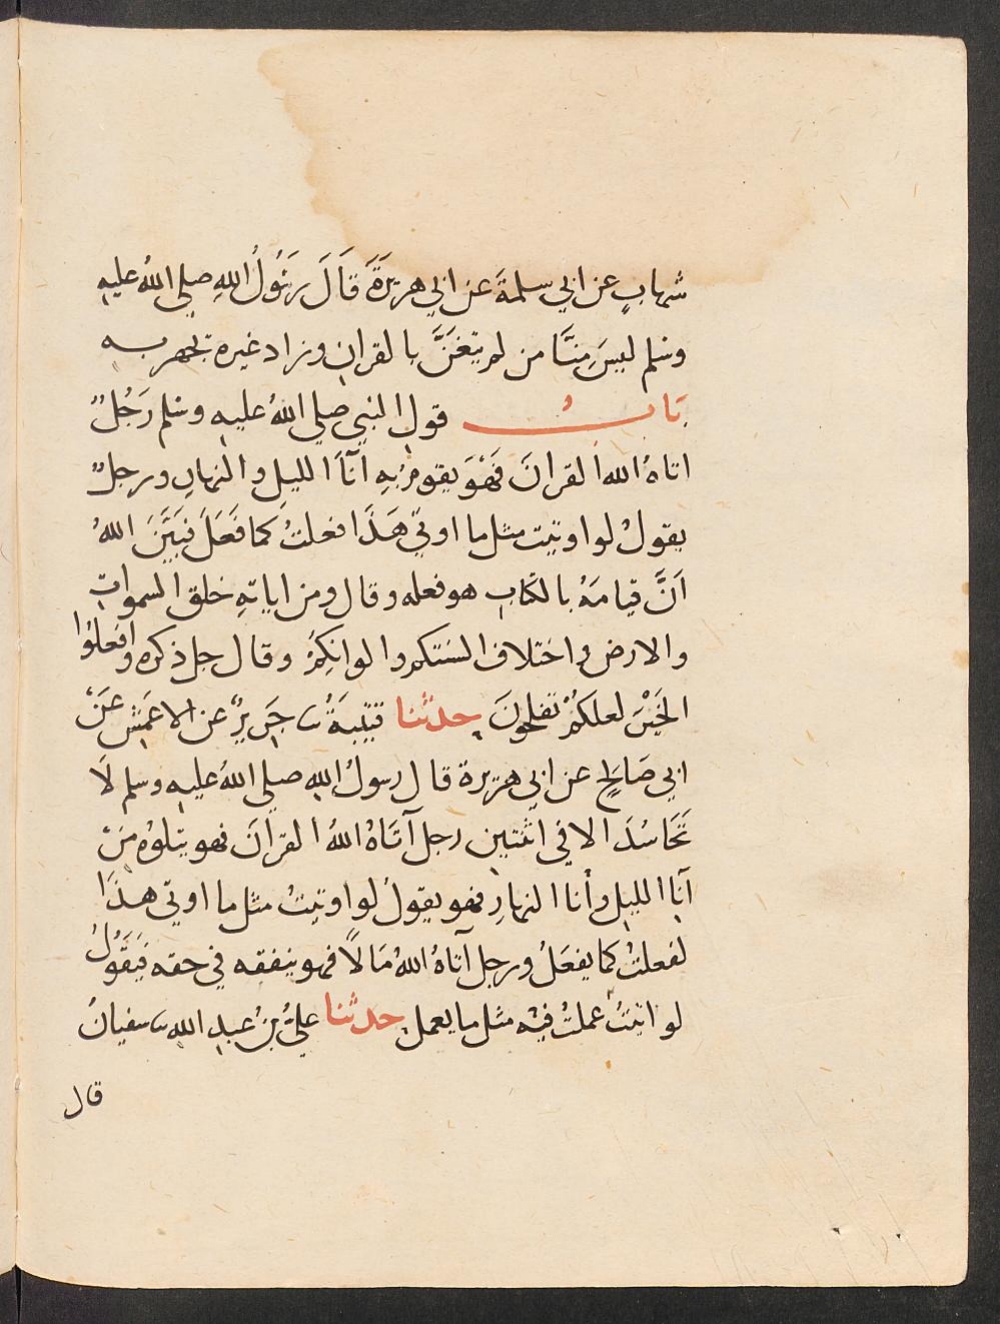 شهابٍ عن ابي سلمةَ عن ابي هريَرَةَ قَالَ رَسُولُ اللهِ صلي اللهُ عليهِ
وسَلم ليسَ مِنَّا من لم يتغنَّ بالقران وزاد غيره يجهر به
بَابُ قول النبي صلي اللهُ عليهِ وسَلم رَجُلٌ
اتاهُ اللهُ القرانَ فَهْوَ يقوم بِهِ آنَآءَ الليلِ والنهارِ ورجلٌ
يقولُ لو اوتيت مثل ما اوتيَ هَذَا فعلتُ كما فَعَلَ فبَيَّنَ اللهُ
اَنَّ قيامَهُ بالكتاب هو فعله وقال ومن اياتهِ خلق السمواتِ
والارض واختلاف السنتكم والوانِكُمْ وقال جل ذكره وافعلوُا
الخَيْرَ لعلكُمْ تفلحُونَ حدثنا قتيْبَةُ نا جَرِيرٌ عن الاعمَشِ عَنْ
ابي صَالحٍ عن ابي هريرة قال رسولُ اللهِ صلي اللهُ عليهِ وسلم لَا
تَحَاسُدَ الا في اثنتين رجل آتَاهُ اللهُ القرانَ فهو يتلوُه مِنْ
آنا الليل وأنا النهارِ فهو يقولُ لو اوتيتُ مثل ما اوتي هذَا
لفعلتُ كما يفعَلُ ورجل آتاهُ اللهُ مَالًا فهو ينفقه في حقه فيَقُولُ
لو اتيتُ عملتُ فيْهِ مثل ما يعمل حدثنا عليُّ بنُ عبدِ اللهِ نا سفيانُ
قال